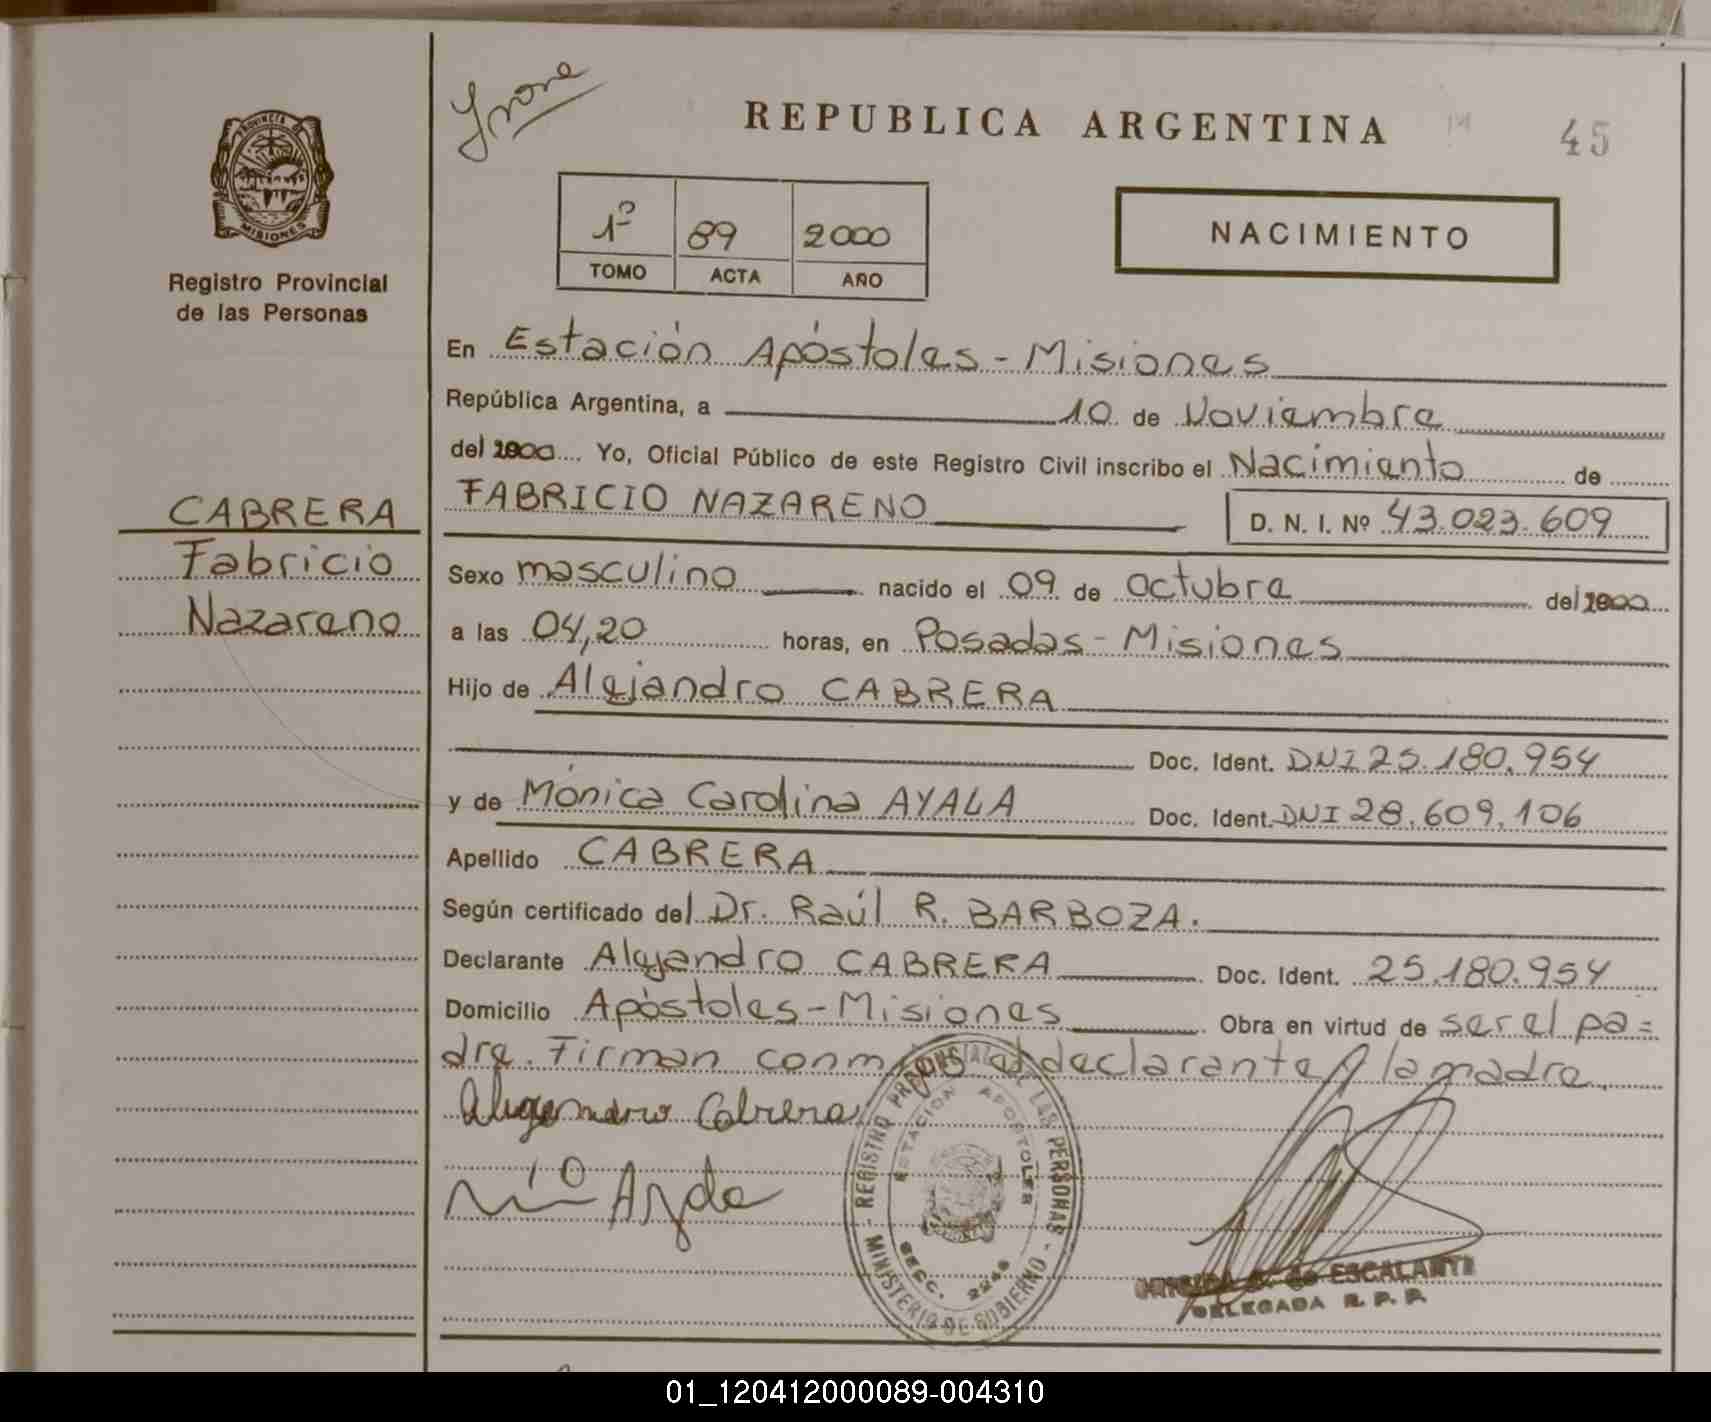 Ivone
REPUBLICA ARGENTINA
45
PROVINCIA DE
MISIONES
Registro Provincial
de las Personas
1º 89 2000
TOMO ACTA AÑO
NACIMIENTO
En Estación Apóstoles - Misiones
República Argentina, a 10 de Noviembre
del 2000 Yo, Oficial Público de este Registro Civil inscribo el Nacimiento de
CABRERA
Fabricio
Nazareno
FABRICIO NAZARENO D. N. I. Nº 43.023.609
Sexo masculino nacido el 09 de octubre del 2000
a las 04,20 horas, en Posadas - Misiones
Hijo de Alejandro CABRERA
Doc. Ident. DNI 25.180.954
y de Mónica Carolina AYALA Doc. Ident. DNI 28.609.106
Apellido CABRERA
Según certificado del Dr. Raúl R. BARBOZA.
Declarante Alejandro CABRERA Doc. Ident. 25.180.954
Domicilio Apóstoles - Misiones Obra en virtud de ser el pa=
dre. Firman conmigo el declarante y la madre.
Alejandro Cabrera
REGISTRO PROVINCIAL DE LAS PERSONAS - MINISTERIO DE GOBIERNO -
ESTACION APOSTOLES
SECC. 2246
de ESCALANTE
DELEGADA R. P. P.
01_120412000089-004310